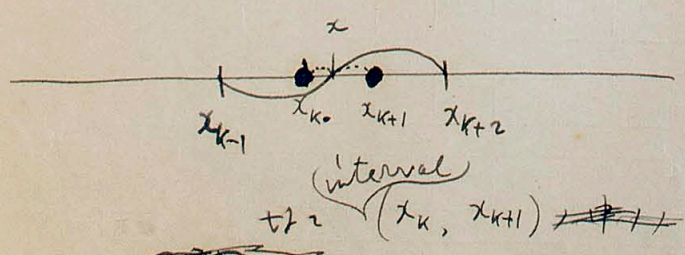 x
x_{k-1} x_k x_{k+1} x_{k+2}
(interval)
(x_k, x_{k+1})